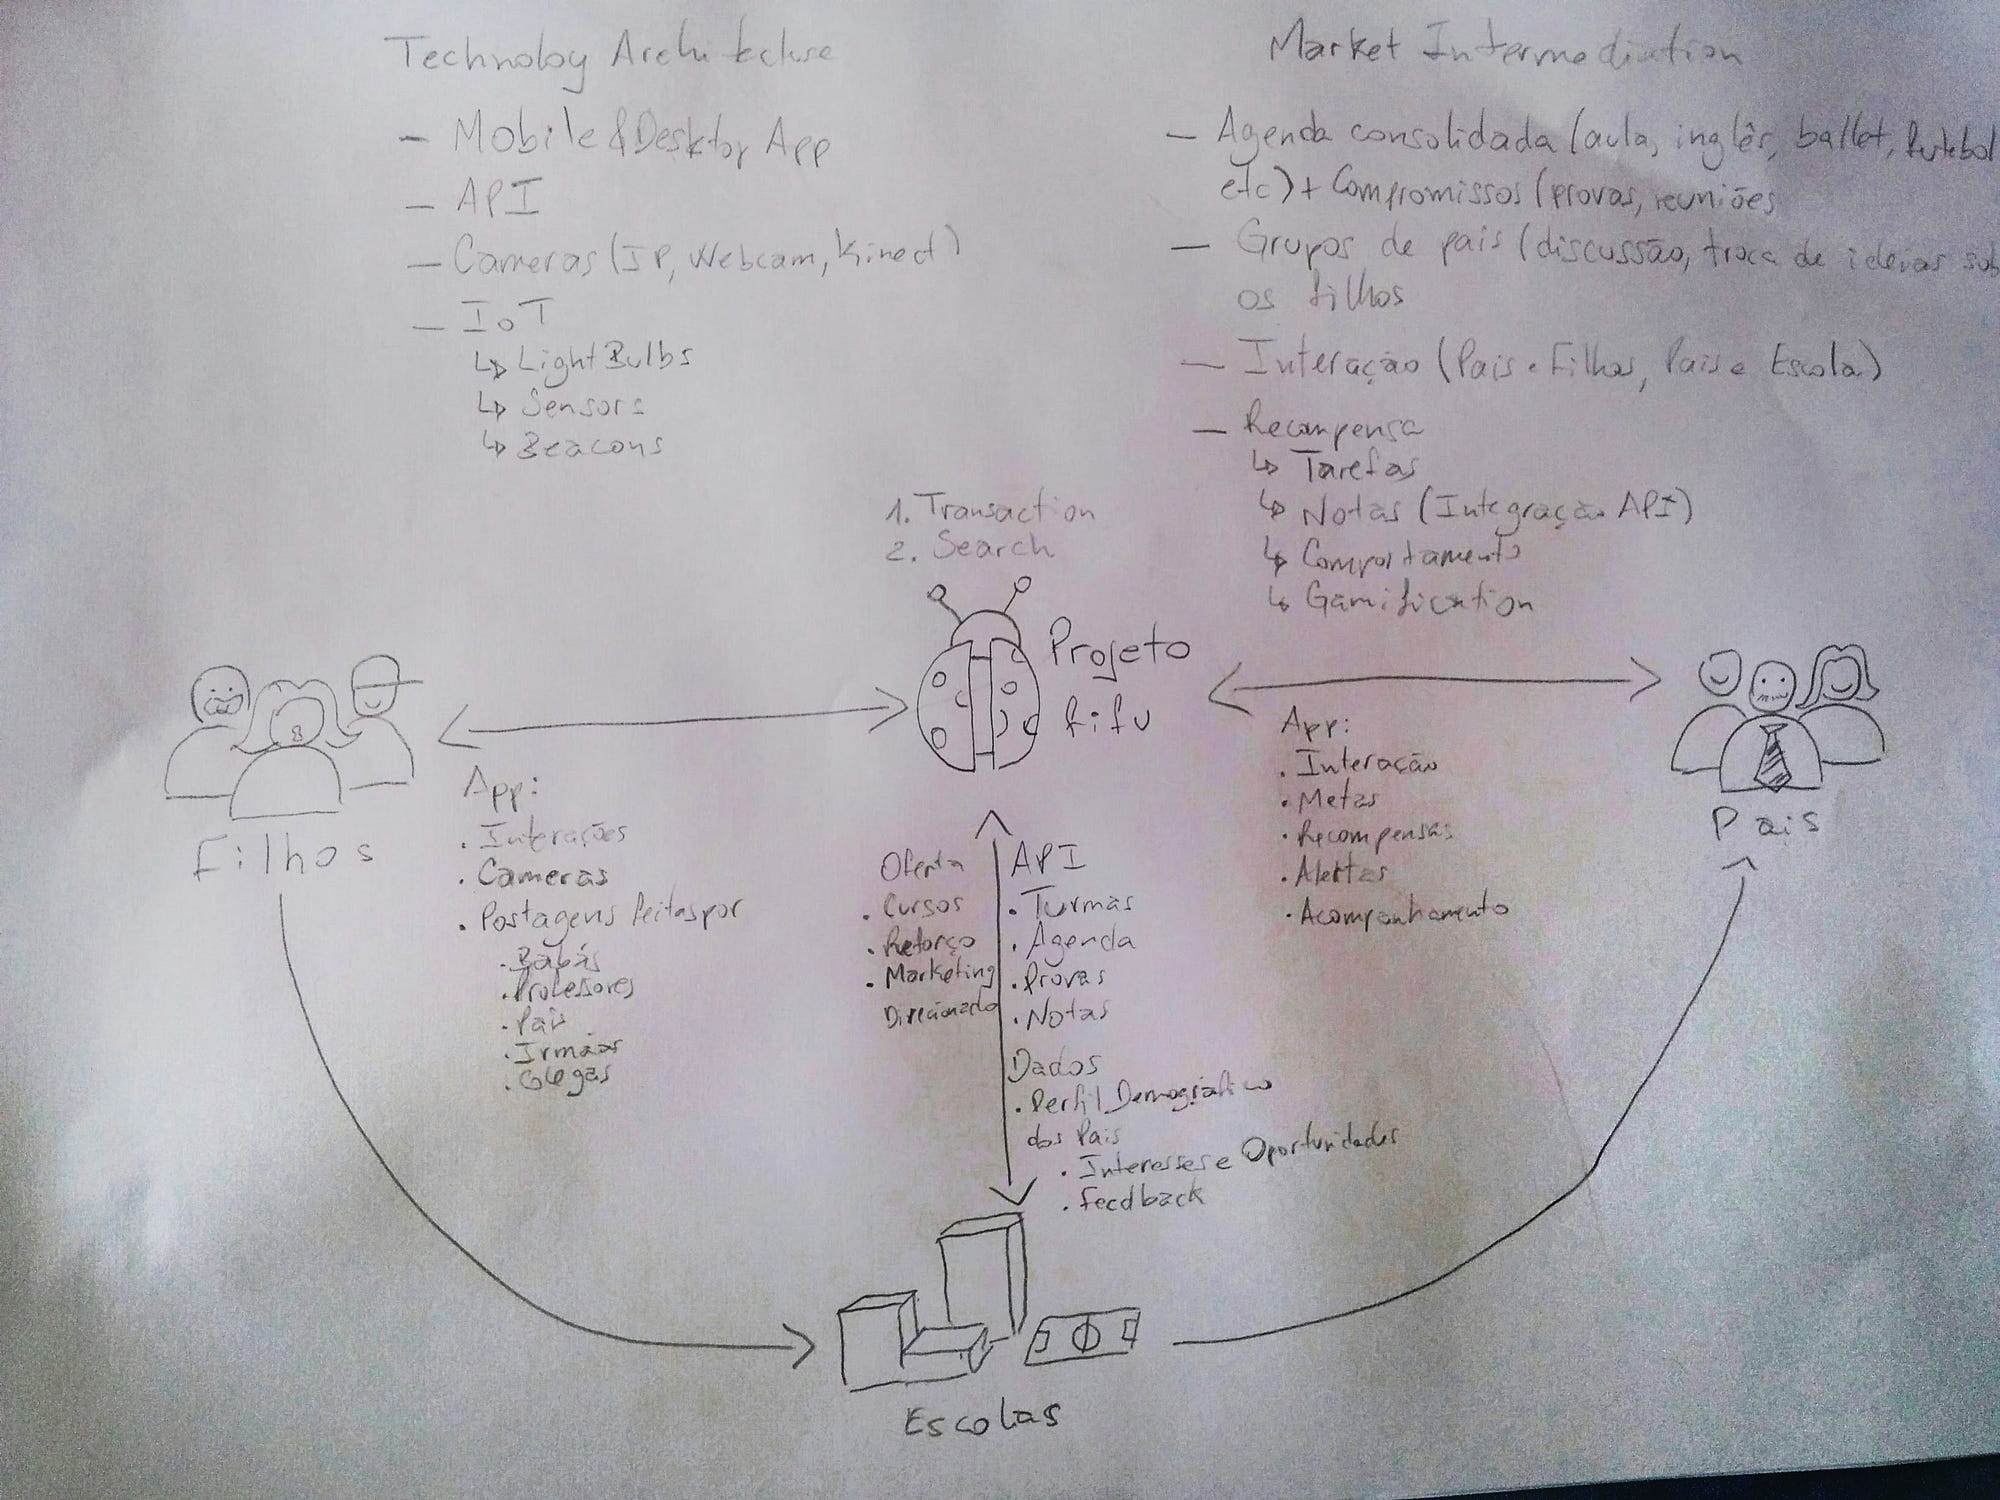 Technology Architecture
- Mobile & Desktop App
- API
- Cameras (IP, Webcam, Kinect)
- IoT
↳ LightBulbs
↳ Sensors
↳ Beacons
Market Intermediation
- Agenda consolidada (aula, inglês, ballet, futebol
etc) + Compromissos (provas, reuniões
- Grupos de pais (discussão, troca de ideias sob
os filhos
- Interação (Pais e Filhos, Pais e Escola)
- Recompensa
↳ Tarefas
↳ Notas (Integração API)
↳ Comportamento
↳ Gamification
1. Transaction
2. Search
Projeto
fifu
Filhos
App:
. Interações
. Cameras
. Postagens feitas por
. Babás
. Professores
. Pais
. Irmãos
. Colegas
Oferta
. Cursos
. Reforço
. Marketing
Direcionado
API
. Turmas
. Agenda
. Provas
. Notas
Dados
. Perfil Demográfico
dos Pais
. Interesses e Oportunidades
. Feedback
App:
. Interação
. Metas
. Recompensas
. Alertas
. Acompanhamento
Pais
Escolas